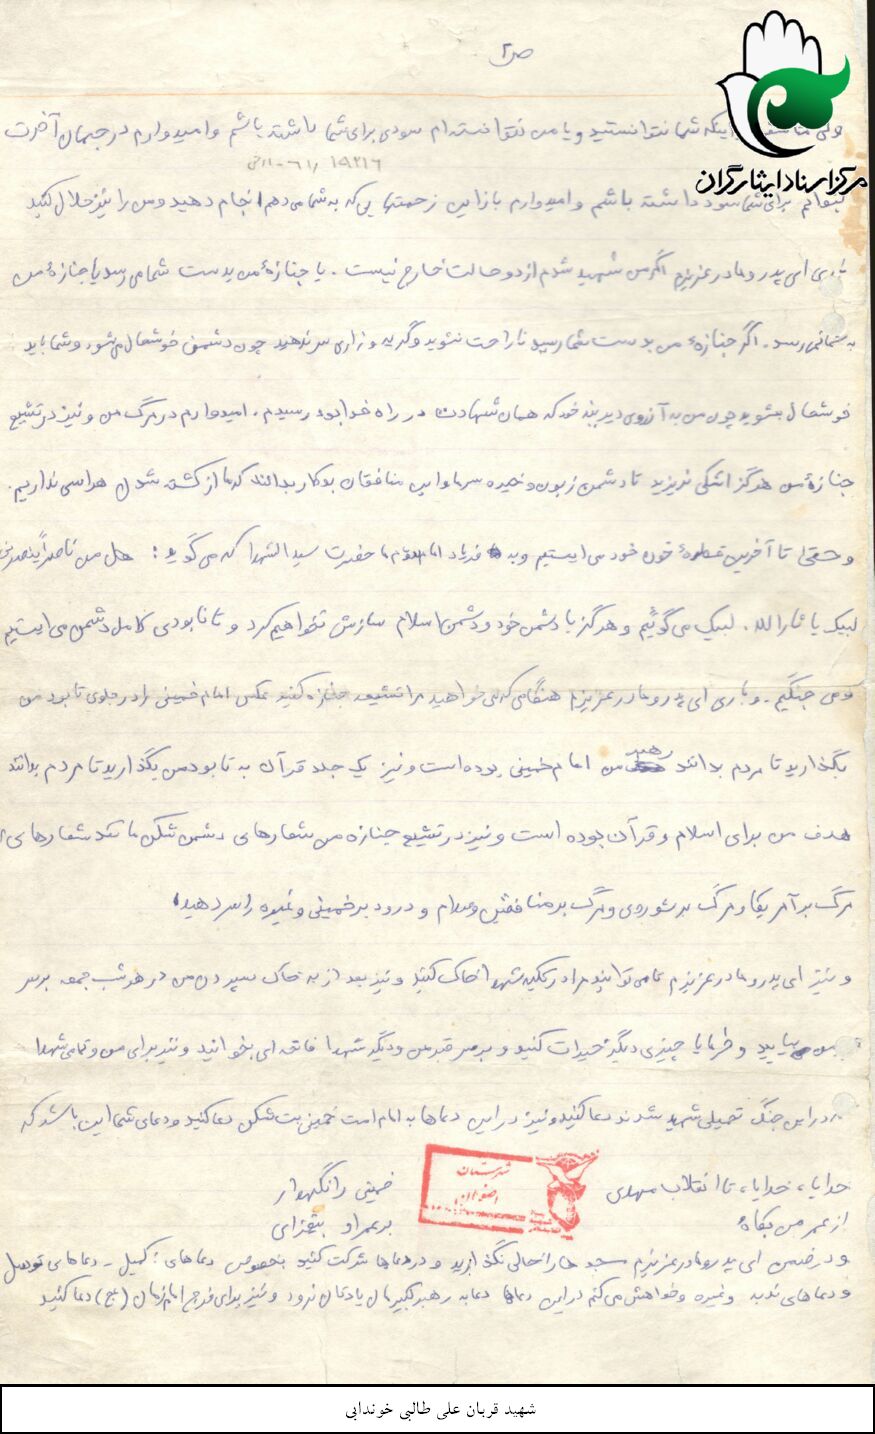 ص ۲
مرکز اسناد ایثارگران
ولی اینکه شما نتوانستید و یا من نتوانستم سودی برای شما داشته باشم و امیدوارم در جهان آخرت
۱۹۲۱۶
بتوانم برای شما سود داشته باشم و امیدوارم باز این زحمتهایی که به شما می دهم انجام دهید و من را نیز حلال کنید
ای پدر و مادر عزیزم اگر من شهید شدم از دو حالت خارج نیست. یا جنازهٔ من بدست شما می رسد یا جنازهٔ من
به شما نمی رسد. اگر جنازهٔ من بدست شما رسید ناراحت نشوید و گریه و زاری سر ندهید چون دشمن خوشحال می شود و شما باید
خوشحال بشوید چون من به آرزوی دیرینه خود که همان شهادت در راه خدا بود رسیدم. امیدوارم در مرگ من و نیز در تشیع
جنازهٔ من هرگز اشکی نریزید تا دشمن زبون و این منافقان بدکار بدانند که ما از کشته شدن هراسی نداریم.
و حتی تا آخرین قطرهٔ خون خود می ایستیم و به فریاد امام حضرت سید الشهدا که می گوید: هل من ناصراً ینصرنی
لبیک یا ثارالله. لبیک می گوئیم و هرگز با دشمن خود و دشمن اسلام سازش نخواهیم کرد و تا نابودی کامل دشمن می ایستیم
و می جنگیم. و باری ای پدر و مادر عزیزم هنگامی که می خواهید مرا تشیع جنازه کنید عکس امام خمینی را در جلوی تابوت من
بگذارید تا مردم بدانند رهبر من امام خمینی بوده است و نیز یک جلد قرآن به تابوت من بگذارید تا مردم بدانند
هدف من برای اسلام و قرآن بوده است و نیز در تشیع جنازه من شعارهای دشمن شکن مانند شعارهای
مرگ بر آمریکا و مرگ بر شوروی و مرگ بر منافقین و صدام و درود بر خمینی و غیره را سر دهید.
و نیز ای پدر و مادر عزیزم تا می توانید مرا در تکیه شهدا خاک کنید و نیز بعد از به خاک سپردن من در هر شب جمعه بر سر
من بیایید و خرما یا چیزی دیگر خیرات کنید و بر سر قبر من و دیگر شهدا فاتحه ای بخوانید و نیز برای من و تمامی شهدا
در این جنگ تحمیلی شهید شدند دعا کنید و نیز در این دعاها به امام امت خمینی بت شکن دعا کنید و دعای شما این باشد که
خدایا، خدایا، تا انقلاب مهدی خمینی را نگهدار
از عمر من بکاه بر عمر او بیفزای
شهرستان
و در ضمن ای پدر و مادر عزیزم مسجدها را خالی نگذارید و در دعاها شرکت کنید بخصوص دعاهای: کمیل - دعاهای توسل
و دعاهای ندبه و غیره و خواهش می کنم در این دعاها دعا به رهبر کبیرمان یادتان نرود و نیز برای فرج امام زمان (عج) دعا کنید
شهید قربان علی طالبی خوندابی